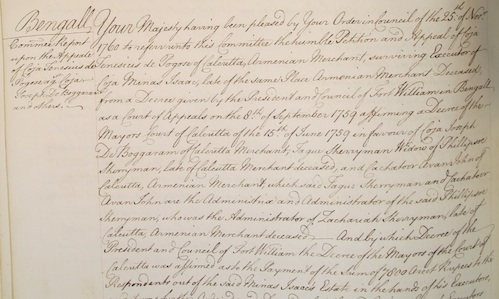 Bengall.
Committee Report
upon the Appeal
of Coja Fenesius de
Gogossy Coja
Joseph De Boggaram
and others.
Your Majesty having been pleased by Your Order in Council of the 25th of Novr.
1760 to referr unto this Committee the humble Petition and Appeal of Coja
Fenesicus de Gogose of Calcutta, Armenian Merchant, surviving Executor of
Coja Manas Isaac, late of the same Place Armenian Merchant Deceased,
from a Decree given by the President and Council of Fort William in Bengall
as a Court of Appeals on the 8th of September 1759 affirming a Decree of the
Mayors Court of Calcutta of the 15th of June 1759 in favour of Coja Joseph
De Boggaram of Calcutta Merchant; Taqui Sherryman Widow of Phillipse
Sherryman, late of Calcutta Merchant deceased, and Cachatoor Avan John of
Calcutta, Armenian Merchant, which said Taqui Sherryman and Cachatoor
Avan John are the Administrix and Administrator of the said Phillipse
Sherryman, who was the Administrator of Zachariah Sherryman, late of
Calcutta, Armenian Merchant deceased And by which Decree of the
President and Council of Fort William the Decree of the Mayors of the Court of
Calcutta was affirmed as to the Payment of the Sum of 7800 Arcot Rupees to the
Respondents out of the said Manas Isaac's Estate in the hands of his Executors,